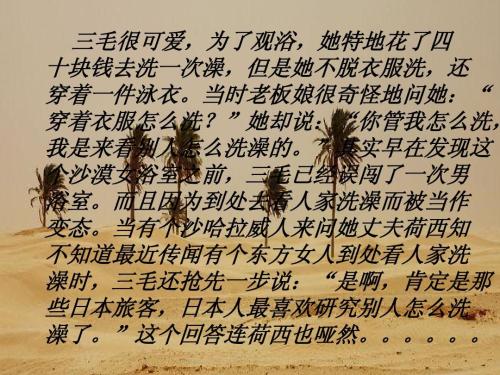 三毛很可爱，为了观浴，她特地花了四
十块钱去洗一次澡，但是她不脱衣服洗，还
穿着一件泳衣。当时老板娘很奇怪地问她：“
穿着衣服怎么洗？”她却说：“你管我怎么洗，
我是来看别人怎么洗澡的。”其实早在发现这
个沙漠女浴室之前，三毛已经误闯了一次男
浴室。而且因为到处去看人家洗澡而被当作
变态。当有个沙哈拉威人来问她丈夫荷西知
不知道最近传闻有个东方女人到处看人家洗
澡时，三毛还抢先一步说：“是啊，肯定是那
些日本旅客，日本人最喜欢研究别人怎么洗
澡了。”这个回答连荷西也哑然。。。。。。